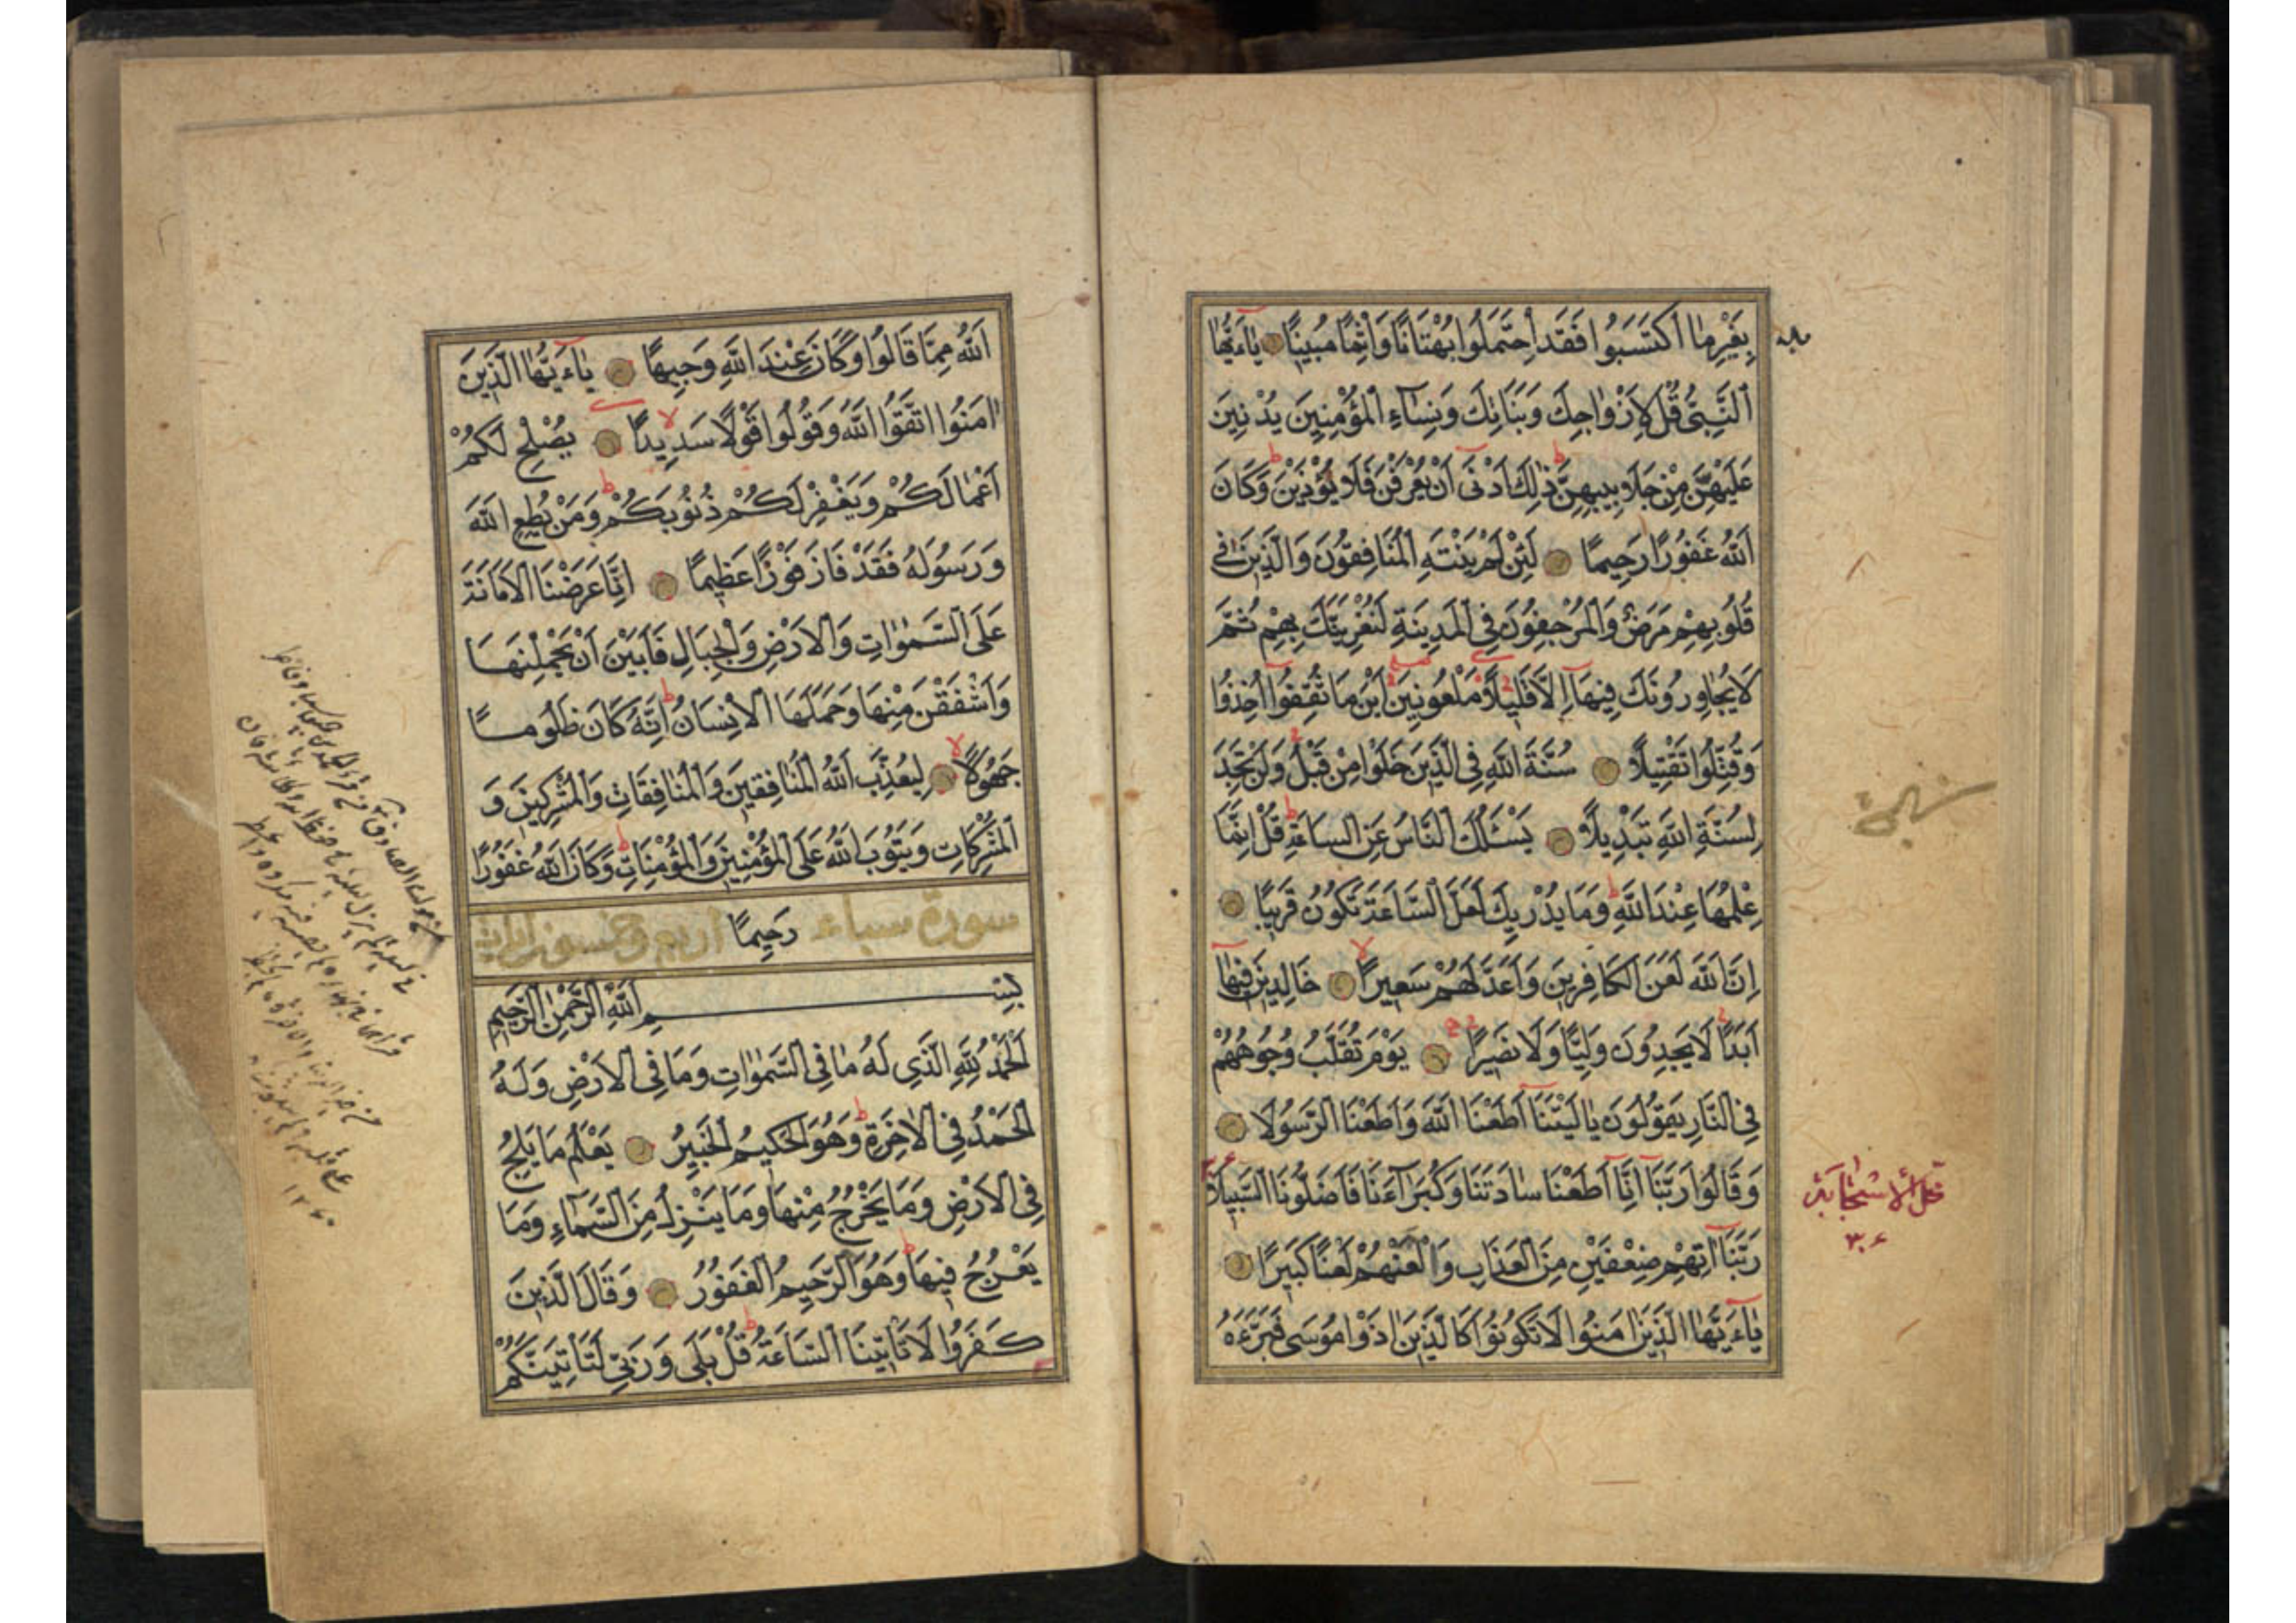 بِغَيْرِ مَا اكْتَسَبُوا فَقَدِ احْتَمَلُوا بُهْتَانًا وَاِثْمًا مُبِينًا يَاۤءَيُّهَا
النَّبِىُّ قُلْ لِاَزْوَاجِكَ وَبَنَاتِكَ وَنِسَاۤءِ الْمُؤْمِنِينَ يُدْنِينَ
عَلَيْهِنَّ مِنْ جَلَابِيبِهِنَّ ذٰلِكَ اَدْنٰىۤ اَنْ يُعْرَفْنَ فَلَا يُؤْذَيْنَ وَكَانَ
اللّٰهُ غَفُورًا رَحِيمًا لَئِنْ لَمْ يَنْتَهِ الْمُنَافِقُونَ وَالَّذِينَ فِى
قُلُوبِهِمْ مَرَضٌ وَالْمُرْجِفُونَ فِى الْمَدِينَةِ لَنُغْرِيَنَّكَ بِهِمْ ثُمَّ
لَا يُجَاوِرُونَكَ فِيهَاۤ اِلَّا قَلِيلًا مَلْعُونِينَ اَيْنَ مَا ثُقِفُوۤا اُخِذُوا
وَقُتِّلُوا تَقْتِيلًا سُنَّةَ اللّٰهِ فِى الَّذِينَ خَلَوْا مِنْ قَبْلُ وَلَنْ تَجِدَ
لِسُنَّةِ اللّٰهِ تَبْدِيلًا يَسْـَٔلُكَ النَّاسُ عَنِ السَّاعَةِ قُلْ اِنَّمَا
عِلْمُهَا عِنْدَ اللّٰهِ وَمَا يُدْرِيكَ لَعَلَّ السَّاعَةَ تَكُونُ قَرِيبًا
اِنَّ اللّٰهَ لَعَنَ الْكَافِرِينَ وَاَعَدَّ لَهُمْ سَعِيرًا خَالِدِينَ فِيهَاۤ
اَبَدًا لَا يَجِدُونَ وَلِيًّا وَلَا نَصِيرًا يَوْمَ تُقَلَّبُ وُجُوهُهُمْ
فِى النَّارِ يَقُولُونَ يَا لَيْتَنَاۤ اَطَعْنَا اللّٰهَ وَاَطَعْنَا الرَّسُولَا
وَقَالُوا رَبَّنَاۤ اِنَّاۤ اَطَعْنَا سَادَتَنَا وَكُبَرَاۤءَنَا فَاَضَلُّونَا السَّبِيلَا
رَبَّنَاۤ اٰتِهِمْ ضِعْفَيْنِ مِنَ الْعَذَابِ وَالْعَنْهُمْ لَعْنًا كَبِيرًا
يَاۤءَيُّهَا الَّذِينَ اٰمَنُوا لَا تَكُونُوا كَالَّذِينَ اٰذَوْا مُوسٰى فَبَرَّءَهُ
اللّٰهُ مِمَّا قَالُوا وَكَانَ عِنْدَ اللّٰهِ وَجِيهًا يَاۤءَيُّهَا الَّذِينَ
اٰمَنُوا اتَّقُوا اللّٰهَ وَقُولُوا قَوْلًا سَدِيدًا يُصْلِحْ لَكُمْ
اَعْمَالَكُمْ وَيَغْفِرْ لَكُمْ ذُنُوبَكُمْ وَمَنْ يُطِعِ اللّٰهَ
وَرَسُولَهُ فَقَدْ فَازَ فَوْزًا عَظِيمًا اِنَّا عَرَضْنَا الْاَمَانَةَ
عَلَى السَّمٰوَاتِ وَالْاَرْضِ وَالْجِبَالِ فَاَبَيْنَ اَنْ يَحْمِلْنَهَا
وَاَشْفَقْنَ مِنْهَا وَحَمَلَهَا الْاِنْسَانُ اِنَّهُ كَانَ ظَلُومًا
جَهُولًا لِيُعَذِّبَ اللّٰهُ الْمُنَافِقِينَ وَالْمُنَافِقَاتِ وَالْمُشْرِكِينَ وَ
الْمُشْرِكَاتِ وَيَتُوبَ اللّٰهُ عَلَى الْمُؤْمِنِينَ وَالْمُؤْمِنَاتِ وَكَانَ اللّٰهُ غَفُورًا
سورة سباء رَحِيمًا اربع وخمسون اية
بِسْمِ اللّٰهِ الرَّحْمٰنِ الرَّحِيمِ
اَلْحَمْدُ لِلّٰهِ الَّذِى لَهُ مَا فِى السَّمٰوَاتِ وَمَا فِى الْاَرْضِ وَلَهُ
الْحَمْدُ فِى الْاٰخِرَةِ وَهُوَ الْحَكِيمُ الْخَبِيرُ يَعْلَمُ مَا يَلِجُ
فِى الْاَرْضِ وَمَا يَخْرُجُ مِنْهَا وَمَا يَنْزِلُ مِنَ السَّمَاۤءِ وَمَا
يَعْرُجُ فِيهَا وَهُوَ الرَّحِيمُ الْغَفُورُ وَقَالَ الَّذِينَ
كَفَرُوا لَا تَاْتِينَا السَّاعَةُ قُلْ بَلٰى وَرَبِّى لَتَاْتِيَنَّكُمْ